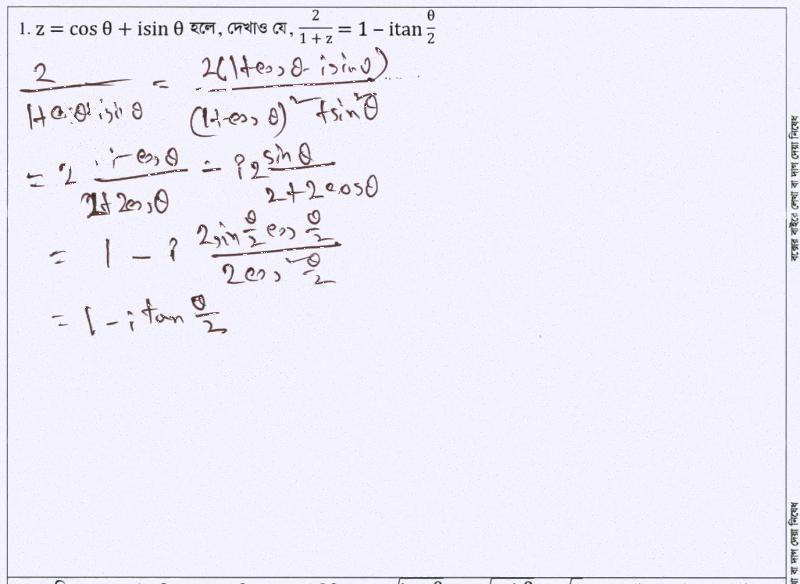 1. z = cos θ + isin θ হলে, দেখাও যে, 2/(1 + z) = 1 − itan θ/2
2/(1+cosθ+isin θ) = 2(1+cos θ - isin θ)/((1+cos θ)² + sin²θ)
= 2 (1+cosθ)/(2+2cosθ) - i2 sin θ/(2+2cosθ)
= 1 - i (2sin θ/2 cos θ/2)/(2cos² θ/2)
= 1 - i tan θ/2
বক্সের বাইরে লেখা বা দাগ দেয়া নিষেধ
বা দাগ দেয়া নিষেধ